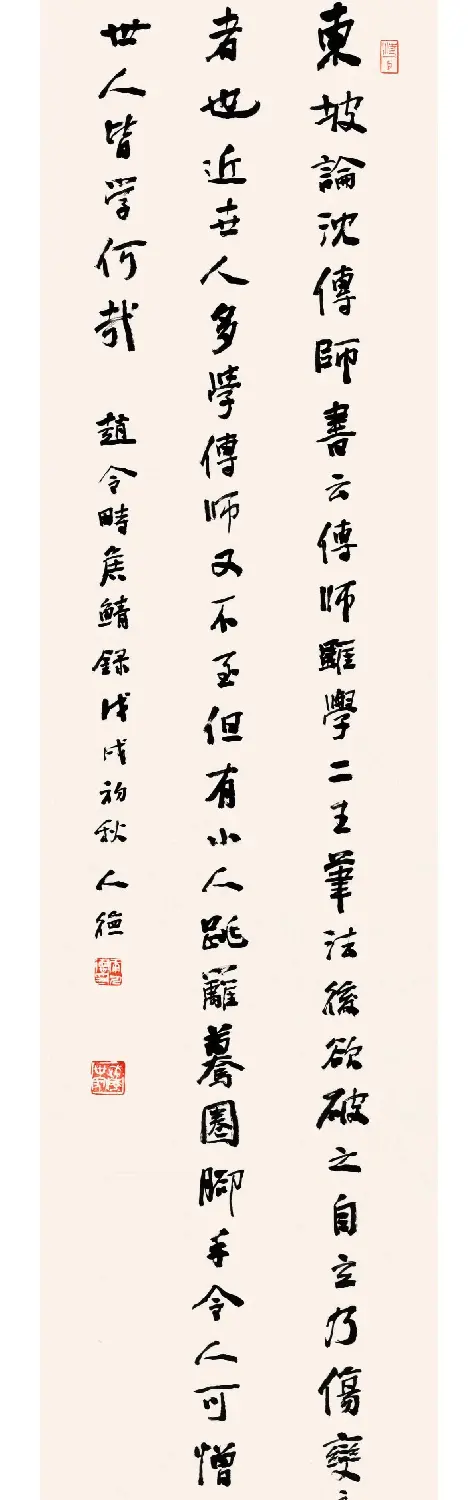 東坡論沈傳師書云傳師雖學二王筆法後欲破之自立乃傷變
者也近世人多學傳師又不至但有小人跳籬驀圈腳手令人可憎
世人皆学何哉
趙令畤矦鯖録戊戌初秋人德